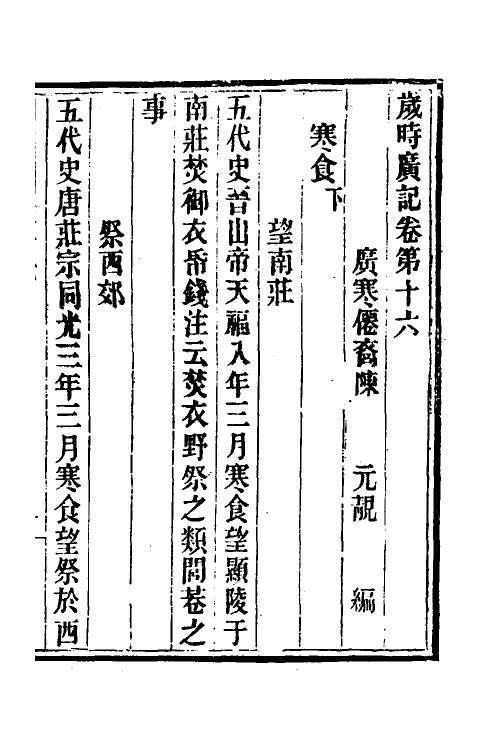 歲時廣記卷第十六
廣寒僊裔陳 元靚 編
寒食下
望南莊
五代史晋出帝天福八年三月寒食望顯陵于
南莊焚御衣帋錢注云焚衣野祭之類閭巷之
事
祭西郊
五代史唐莊宗同光三年三月寒食望祭於西